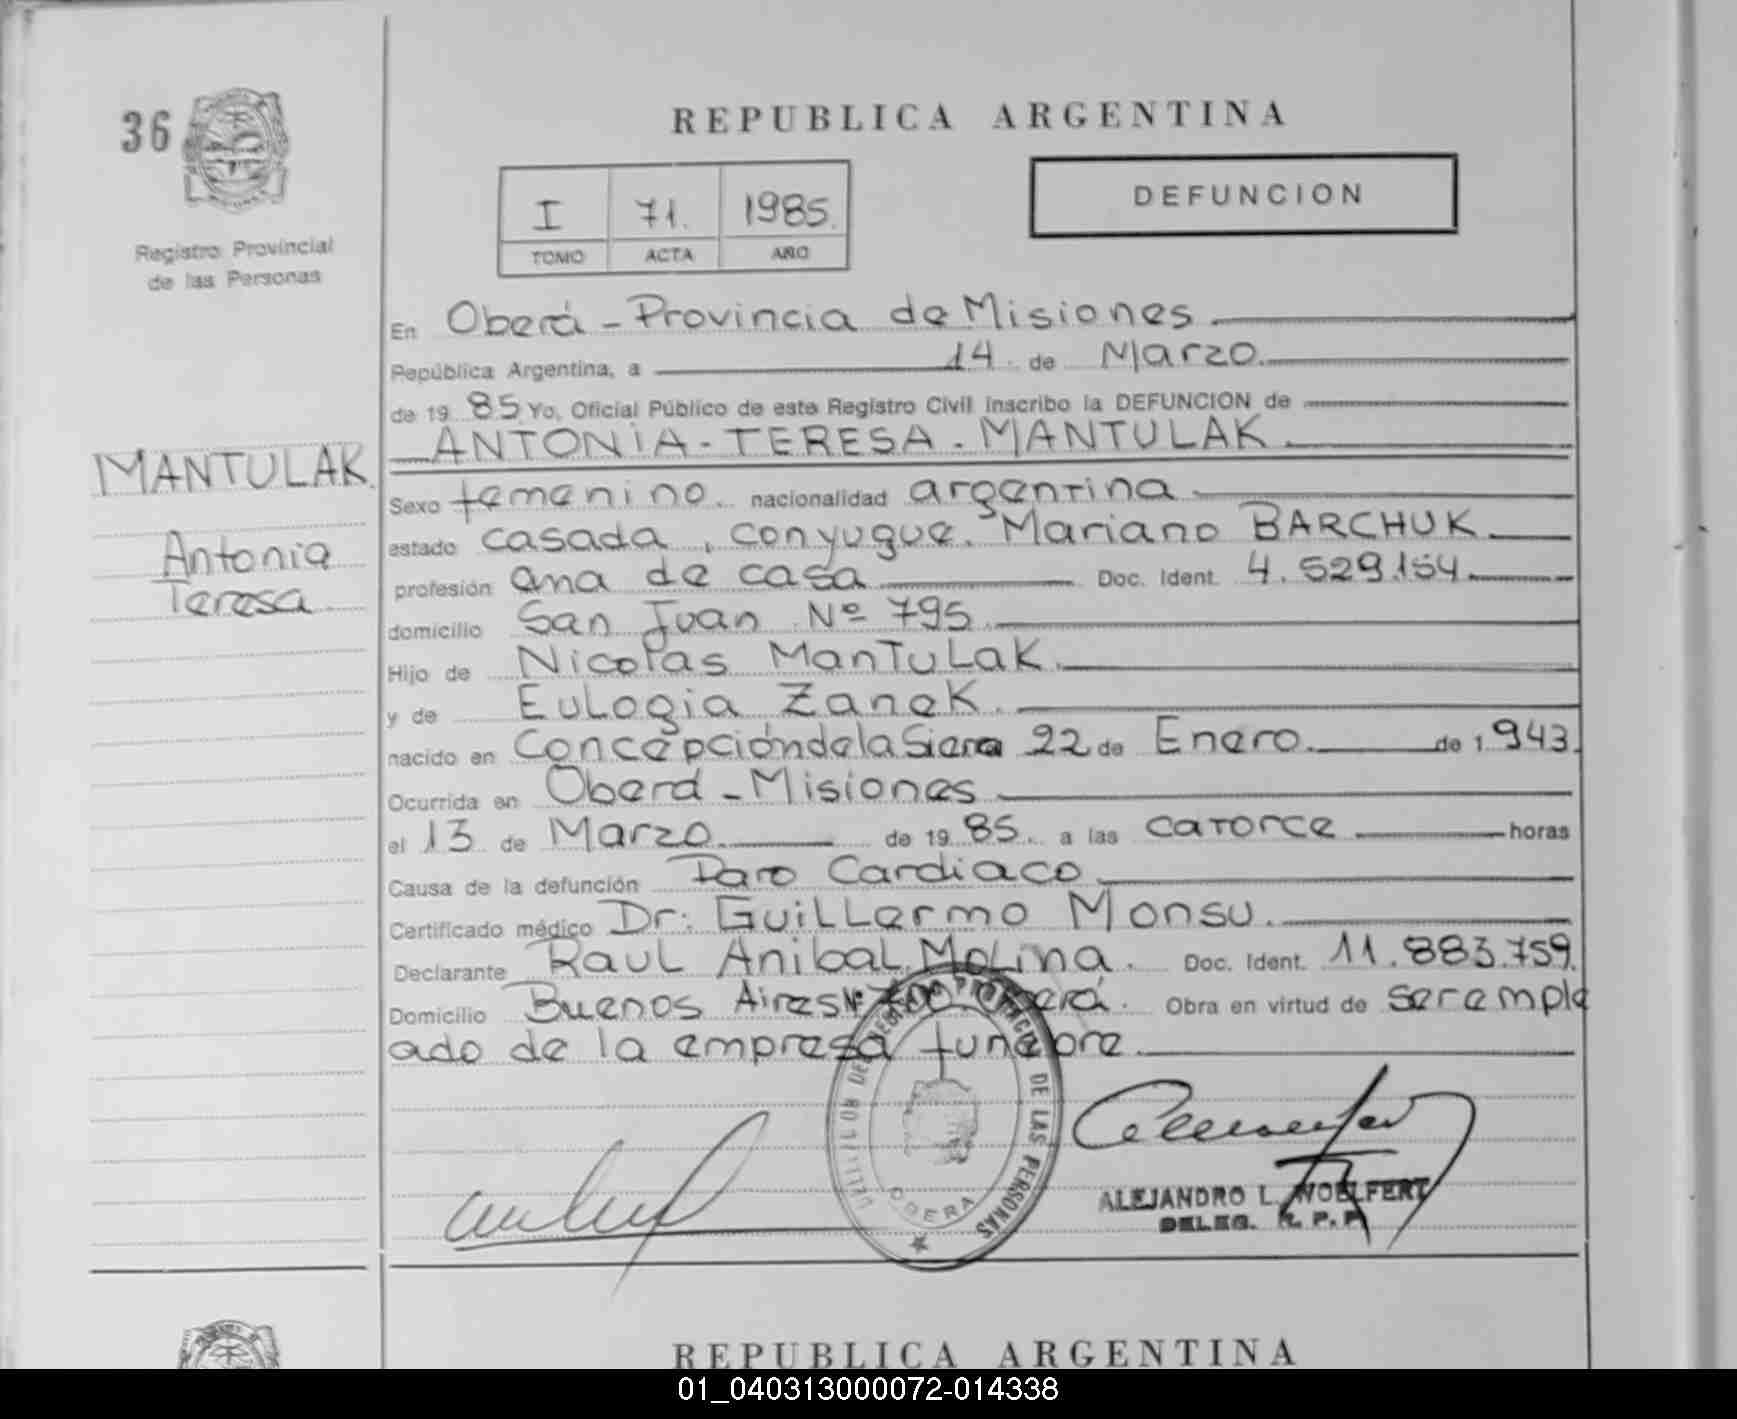 36
Registro Provincial
de las Personas
REPUBLICA ARGENTINA
I 71. 1985.
TOMO ACTA AÑO
DEFUNCION
En Oberá - Provincia de Misiones
República Argentina, a 14 de Marzo.
de 19 85 Yo, Oficial Público de este Registro Civil inscribo la DEFUNCION de
ANTONIA - TERESA - MANTULAK
MANTULAK
Antonia
Teresa
Sexo femenino. nacionalidad argentina
estado casada, conyugue. Mariano BARCHUK
profesión ama de casa Doc. Ident. 4.529.154
domicilio San Juan Nº 795
Hijo de Nicolas Mantulak.
y de Eulogia Zanek.
nacido en Concepción de la Siera 22 de Enero. de 1.943.
Ocurrida en Oberá - Misiones
el 13 de Marzo. de 19 85. a las catorce horas
Causa de la defunción Paro Cardiaco
Certificado médico Dr: Guillermo Monsu.
Declarante Raul Anibal Molina. Doc. Ident. 11.883.759.
Domicilio Buenos Aires Nº 700 Oberá. Obra en virtud de ser emple
ado de la empresa funebre
DE LAS PERSONAS
OBERA
ALEJANDRO L. WOELFERT
DELEG. R. P. P.
REPUBLICA ARGENTINA
01_040313000072-014338